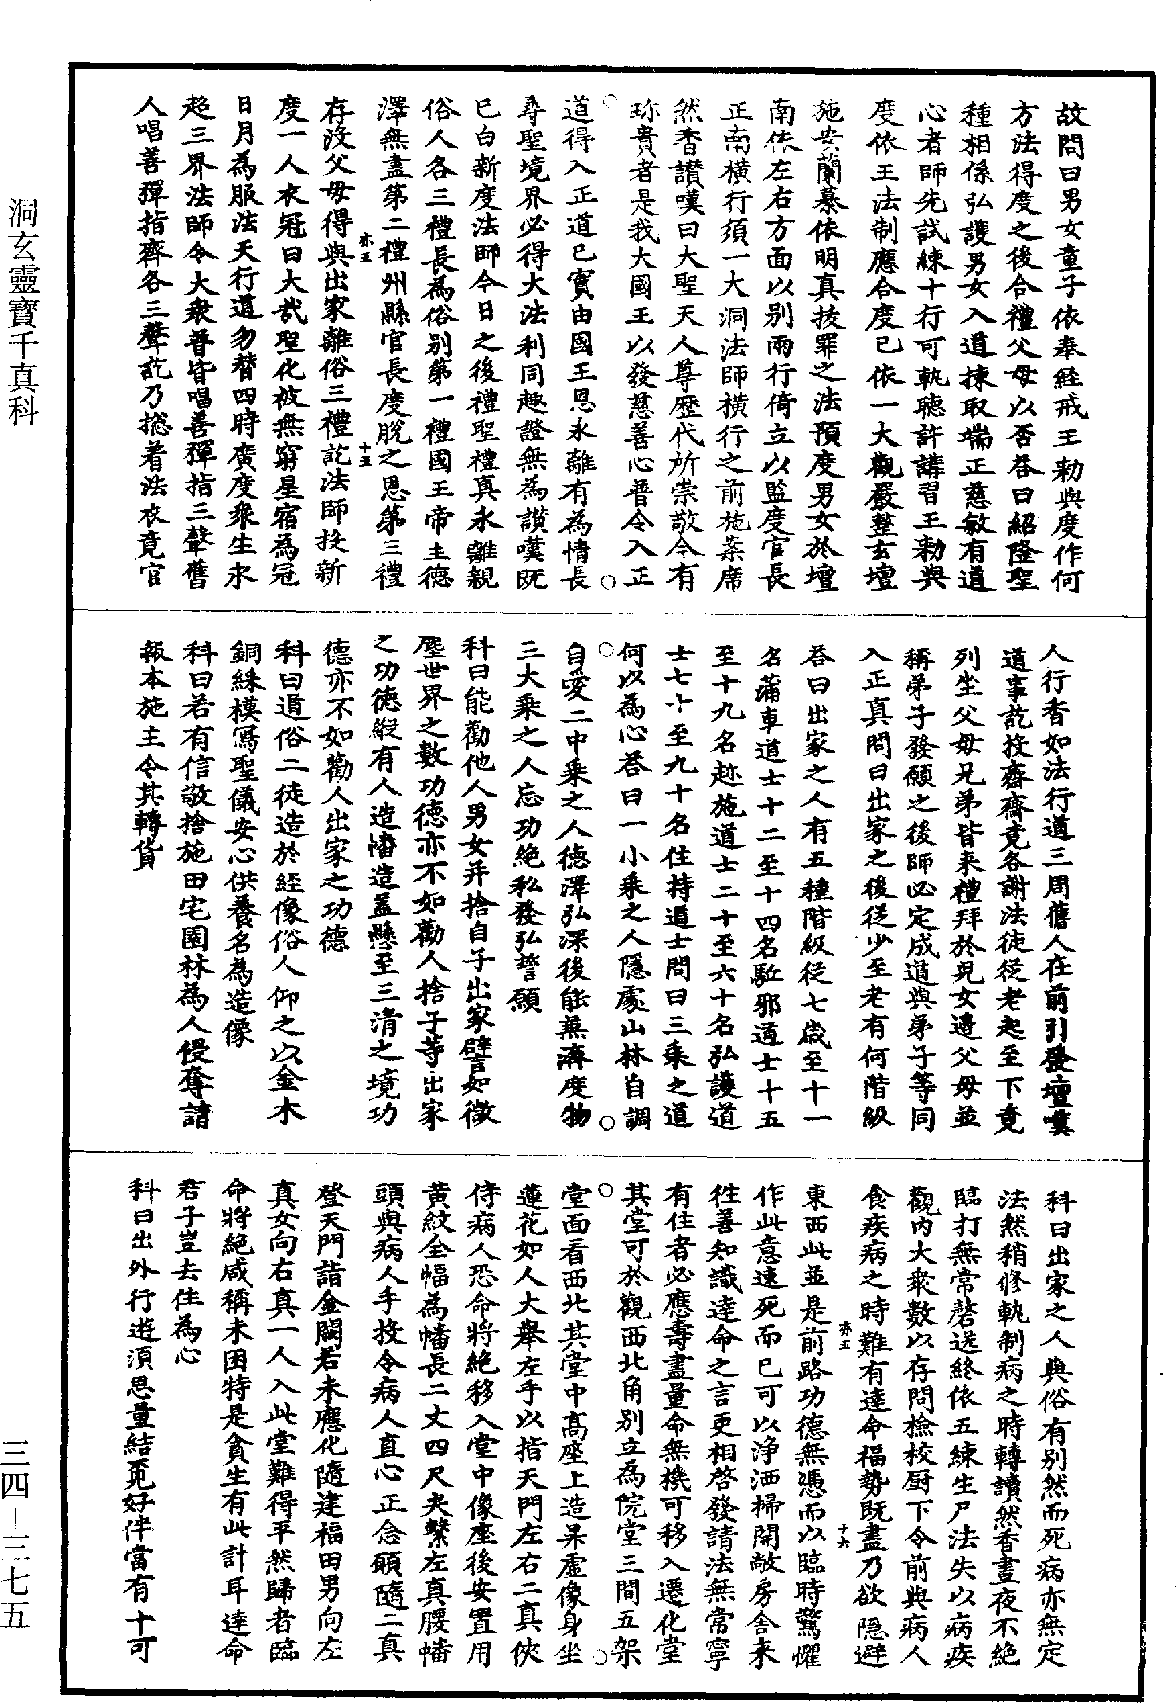 洞玄靈寶千真科
故問曰男女童子依奉經戒王勅與度作何
方法得度之後合禮父母以否荅曰紹隆聖
種相係弘護男女入道揀取端正慈敏有道
心者師先試練十行可軌聽許講習王勅與
度依王法制應合度已依一大觀嚴整玄壇
施安蘭纂依明真拔罪之法預度男女於壇
南依左右方面以別兩行倚立以監度官長
正南橫行須一大洞法師橫行之前施案席
然香讃嘆曰大聖天人尊歷代所崇敬今有
珎貴者是我大國王以發慈善心普令入正
道得入正道已實由國王恩永離有為情長
尋聖境界必得大法利同趣證無為讃嘆既
已白新度法師今日之後禮聖禮真永離親
俗人各三禮長為俗別第一禮國王帝主德
澤無盡第二禮州縣官長度脫之恩第三禮
存沒父母得與出家離俗三禮訖法師授新
度一人衣冠曰大哉聖化被無窮星宿為冠
日月為服法天行道勿替四時廣度衆生永
超三界法師令大衆普皆唱善彈指三聲舊
人唱善彈指齊各三聲訖乃摠着法衣竟官
人行香如法行道三周舊人在前引發壇嘆
道事訖投齋齋竟各謝法徒從老起至下竟
列坐父母兄弟皆來禮拜於兒女邊父母並
稱弟子發願之後師必定成道與弟子等同
入正真問曰出家之後從少至老有何階級
荅曰出家之人有五種階級從七歲至十一
名蒲車道士十二至十四名駈邪道士十五
至十九名趂施道士二十至六十名弘護道
士七十至九十名住持道士問曰三乘之道
何以為心荅曰一小乘之人隱處山林自調
自愛二中乘之人德澤弘深後能兼濟度物
三大乘之人忘功絕私發弘誓願
科曰能勸他人男女并捨自子出家譬如微
塵世界之數功德亦不如勸人捨子等出家
之功德縱有人造幡造蓋懸至三清之境功
德亦不如勸人出家之功德
科曰道俗二徒造於經像俗人仰之以金木
銅綵模寫聖儀安心供養名為造像
科曰若有信敬捨施田宅園林為人侵奪請
報本施主令其轉貨
科曰出家之人與俗有別然而死病亦無定
法然稍修軌制病之時轉讀然香晝夜不絕
臨打無常磬送終依五練生尸法失以病疾
觀內大衆數以存問撿校厨下令前與病人
食疾病之時難有達命福勢既盡乃欲隱避
東西此並是前路功德無憑而以臨時驚懼
作此意速死而已可以浄洒掃開敞房舍來
往善知識達命之言更相啓發請法無常寧
有住者必應壽盡量命無機可移入遷化堂
其堂可於觀西北角別立為院堂三間五架
堂面看西北其堂中髙座上造杲虛像身坐
蓮花如人大舉左手以指天門左右二真俠
侍病人恐命將絕移入堂中像座後安置用
黃紋全幅為幡長二丈四尺夾繫左真腰幡
頭與病人手投令病人直心正念願隨二真
登天門詣金闕若未應化隨建福田男向左
真女向右真一人入此堂難得平然歸者臨
命將絕咸稱未困特是貪生有此計耳達命
君子豈去住為心
科曰出外行遊湏思量結覔好伴當有十可
三四－三七五